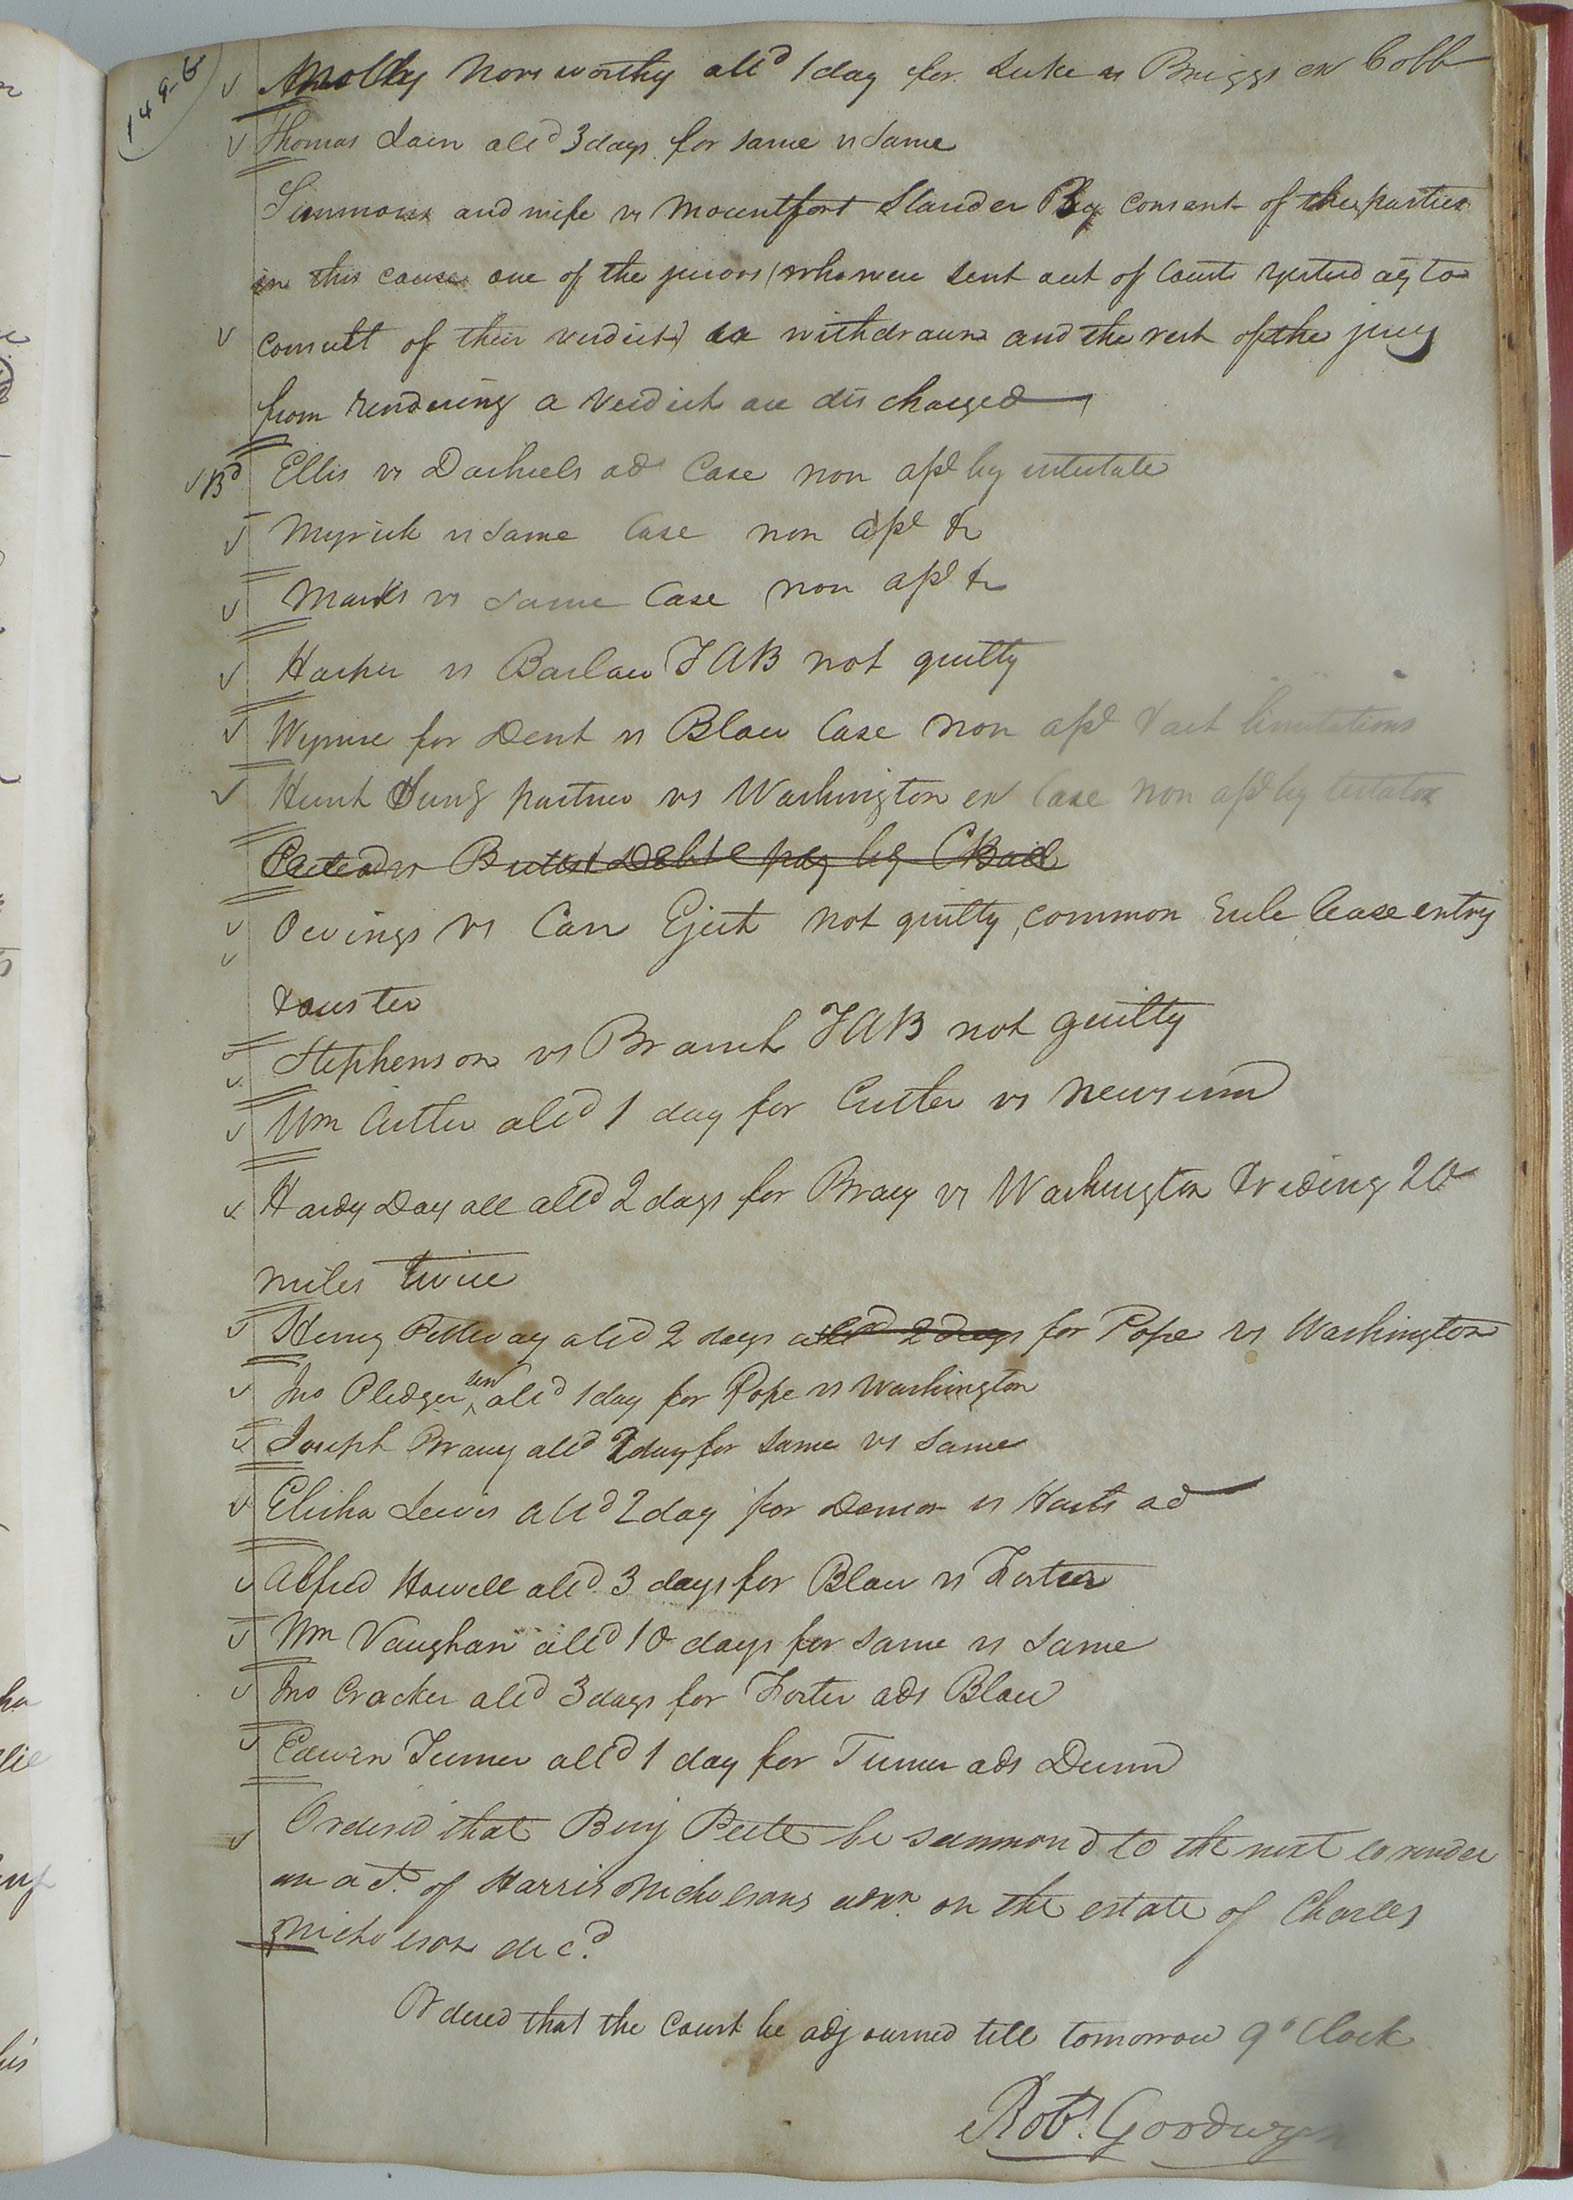 149-b
Molley Norsworthy alld 1 day for Luke vs Briggs ex Cobb
Thomas Lain alld 3 days for same vs same
Simmons and wife vs Mountfort Slander By consent of the parties
in this cause one of the jurors (who were sent out of Court yesterday to
consult of their verdict) is withdrawn and the rest of the jury
from rendering a verdict are discharged
Bd Ellis vs Dashiels ad Case non asst by intestate
Myrick vs same Case non asst &c
Marks vs same Case non asst &c
Harper vs Barlow TAB not guilty
Wynne for Dent vs Blow Case non asst & act limitations
Hunt surv partner vs Washington ex Case non asst by testator
vs Butts Debt pay by CBail
Owings vs Carr Eject not guilty, common rule lease entry
& ouster
Stephenson vs Branch TAB not guilty
Wm Cutler alld 1 day for Cutler vs Newsum
Hardy Day all alld 2 days for Pracy vs Washington & riding 20
miles twice
Henry Pettway alld 2 days alld 2 days for Pope vs Washington
Jno Pledger sen alld 1 day for Pope vs Washington
Joseph alld 2 day for same vs same
Elisha Lewis alld 2 day for vs Harts ad
Alfred Howell alld 3 days for Blow vs Forter
Wm Vaughan alld 10 days for same vs same
Jno Cracker alld 3 days for Forter ads Blow
Edwin Turner alld 1 day for Turner ads Dunn
Ordered that Benj Peete be summond to the next co render
an act. of Harris Nicholsons admn. on the estate of Charles
Nicholson decd.
Ordered that the Court be adjourned till tomorrow 9 oClock
Robt. Goodwyn